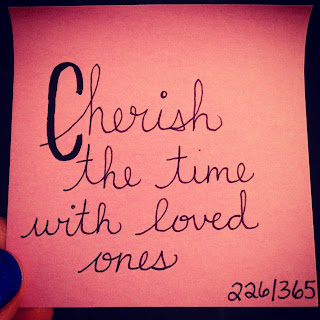 Cherish
the time
with loved
ones
226/365